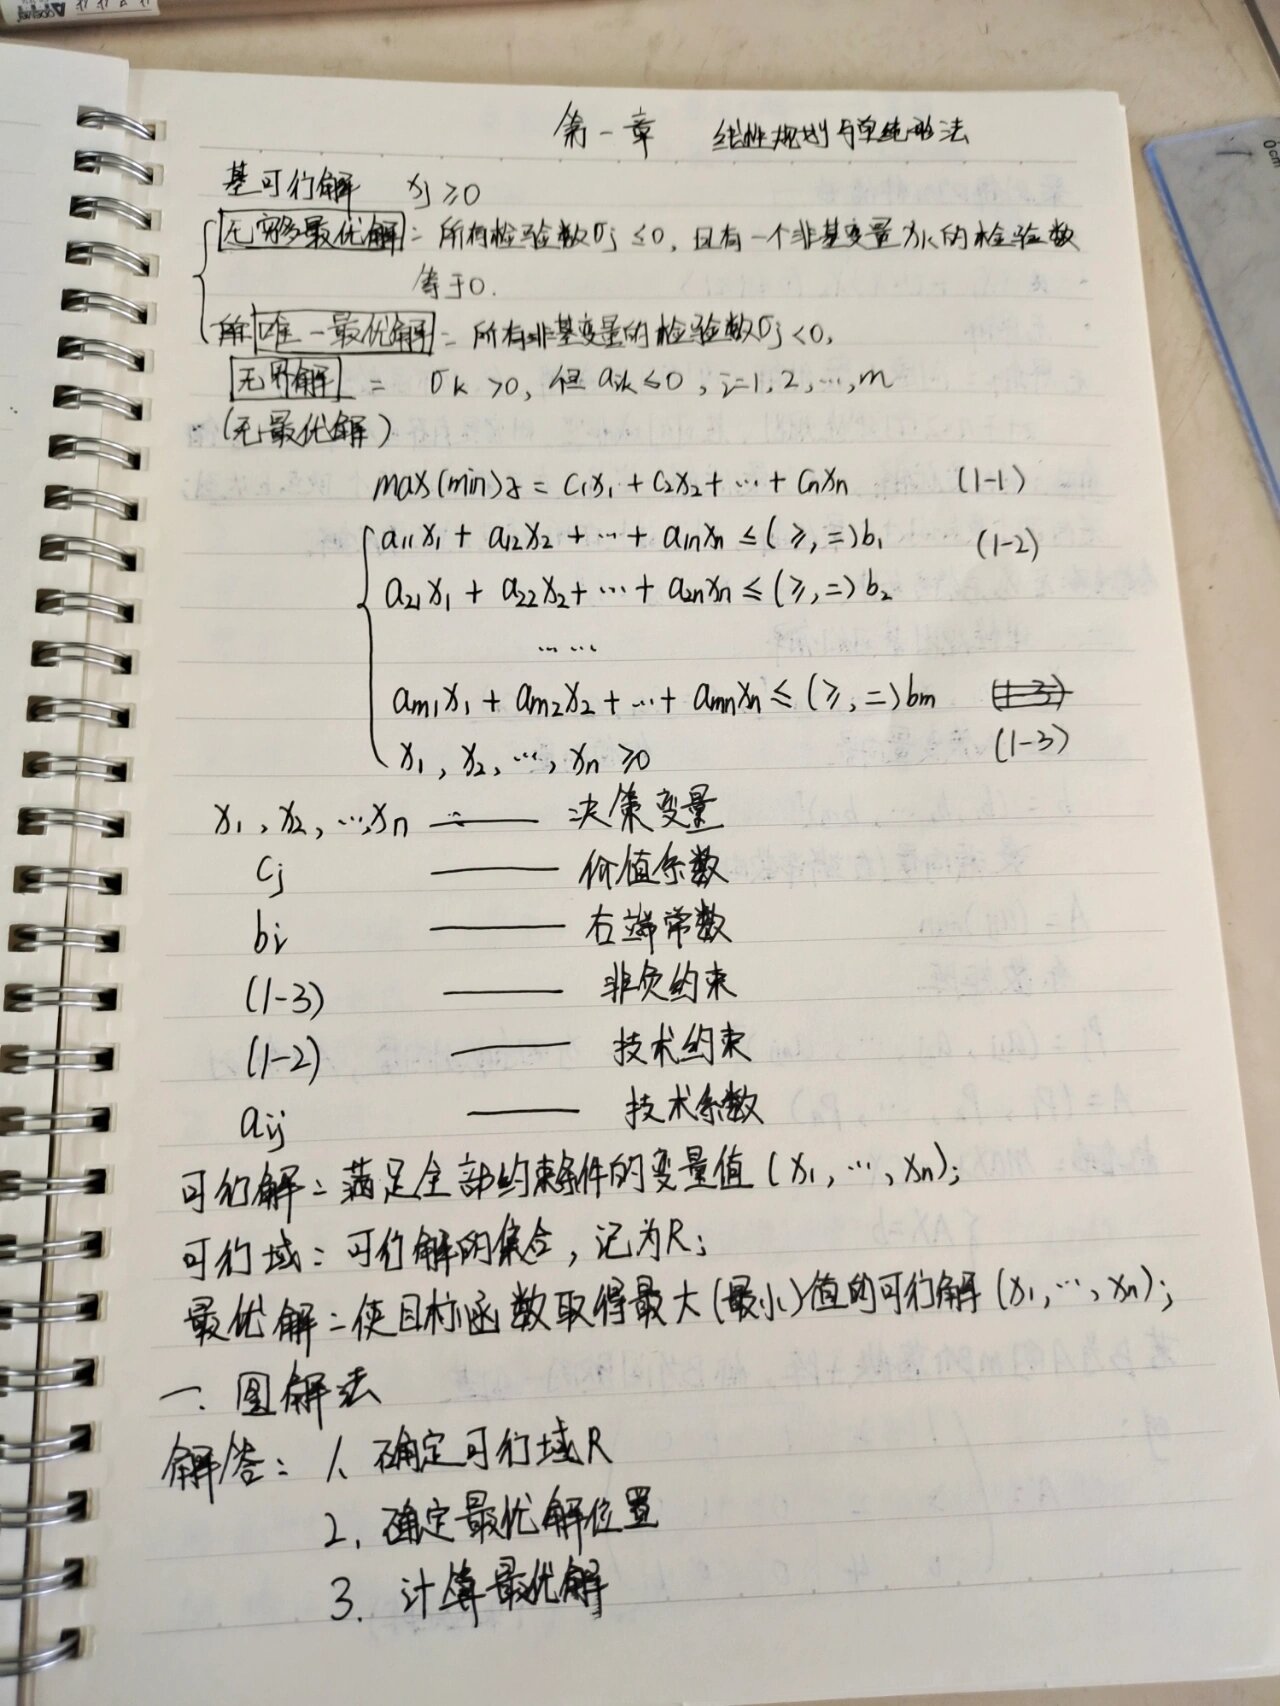 第一章 线性规划与单纯形法
基可行解 xj ≥0
无穷多最优解: 所有检验数σj ≤0, 且有一个非基变量xk的检验数
等于0.
唯一最优解: 所有非基变量的检验数σj<0,
无界解 : σk >0, 但 aik ≤0, i=1, 2, …, m
(无最优解)
max(min)z = c1x1 + c2x2 + … + cnxn (1-1)
a11x1 + a12x2 + … + a1nxn ≤ (≥, =)b1 (1-2)
a21x1 + a22x2 + … + a2nxn ≤ (≥, =) b2
……
am1x1 + am2x2 + … + amnxn ≤ (≥, =)bm (1-3)
x1, x2, …, xn ≥0 (1-3)
x1, x2, …, xn —— 决策变量
cj —— 价值系数
bi —— 右端常数
(1-3) —— 非负约束
(1-2) —— 技术约束
aij —— 技术系数
可行解: 满足全部约束条件的变量值 (x1, …, xn);
可行域: 可行解的集合, 记为R;
最优解: 使目标函数取得最大(最小)值的可行解 (x1, …, xn);
一. 图解法
解答: 1. 确定可行域R
2. 确定最优解位置
3. 计算最优解